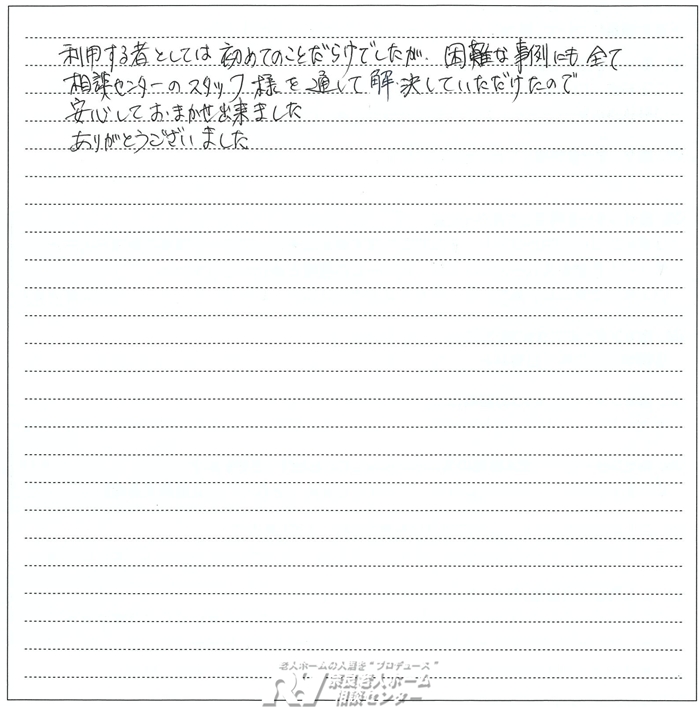 利用する者としては初めてのことだらけでしたが、困難な事例にも全て
相談センターのスタッフ様を通して解決していただけたので
安心しておまかせ出来ました
ありがとうございました
老人ホームの入居を"プロデュース"
奈良老人ホーム
相談センター